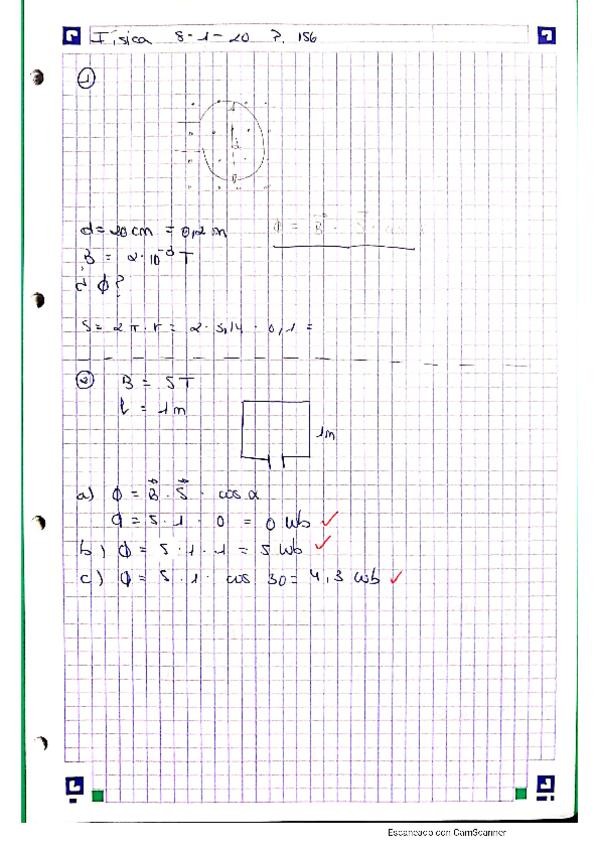 Física 8-1-20 P. 156
①
d = 20 cm = 0,2 m
ϕ = B⃗ · S⃗ ·
B = 2·10⁻³ T
¿ ϕ?
S = 2π·r = 2 · 3,14 · 0,1 =
② B = 5T
l = 1m
1m
a) ϕ = B⃗ · S⃗ · cos α
ϕ = 5 · 1 · 0 = 0 Wb ✓
b) ϕ = 5 · 1 · 1 = 5 Wb ✓
c) ϕ = 5 · 1 · cos 30 = 4,3 Wb ✓
Escaneado con CamScanner